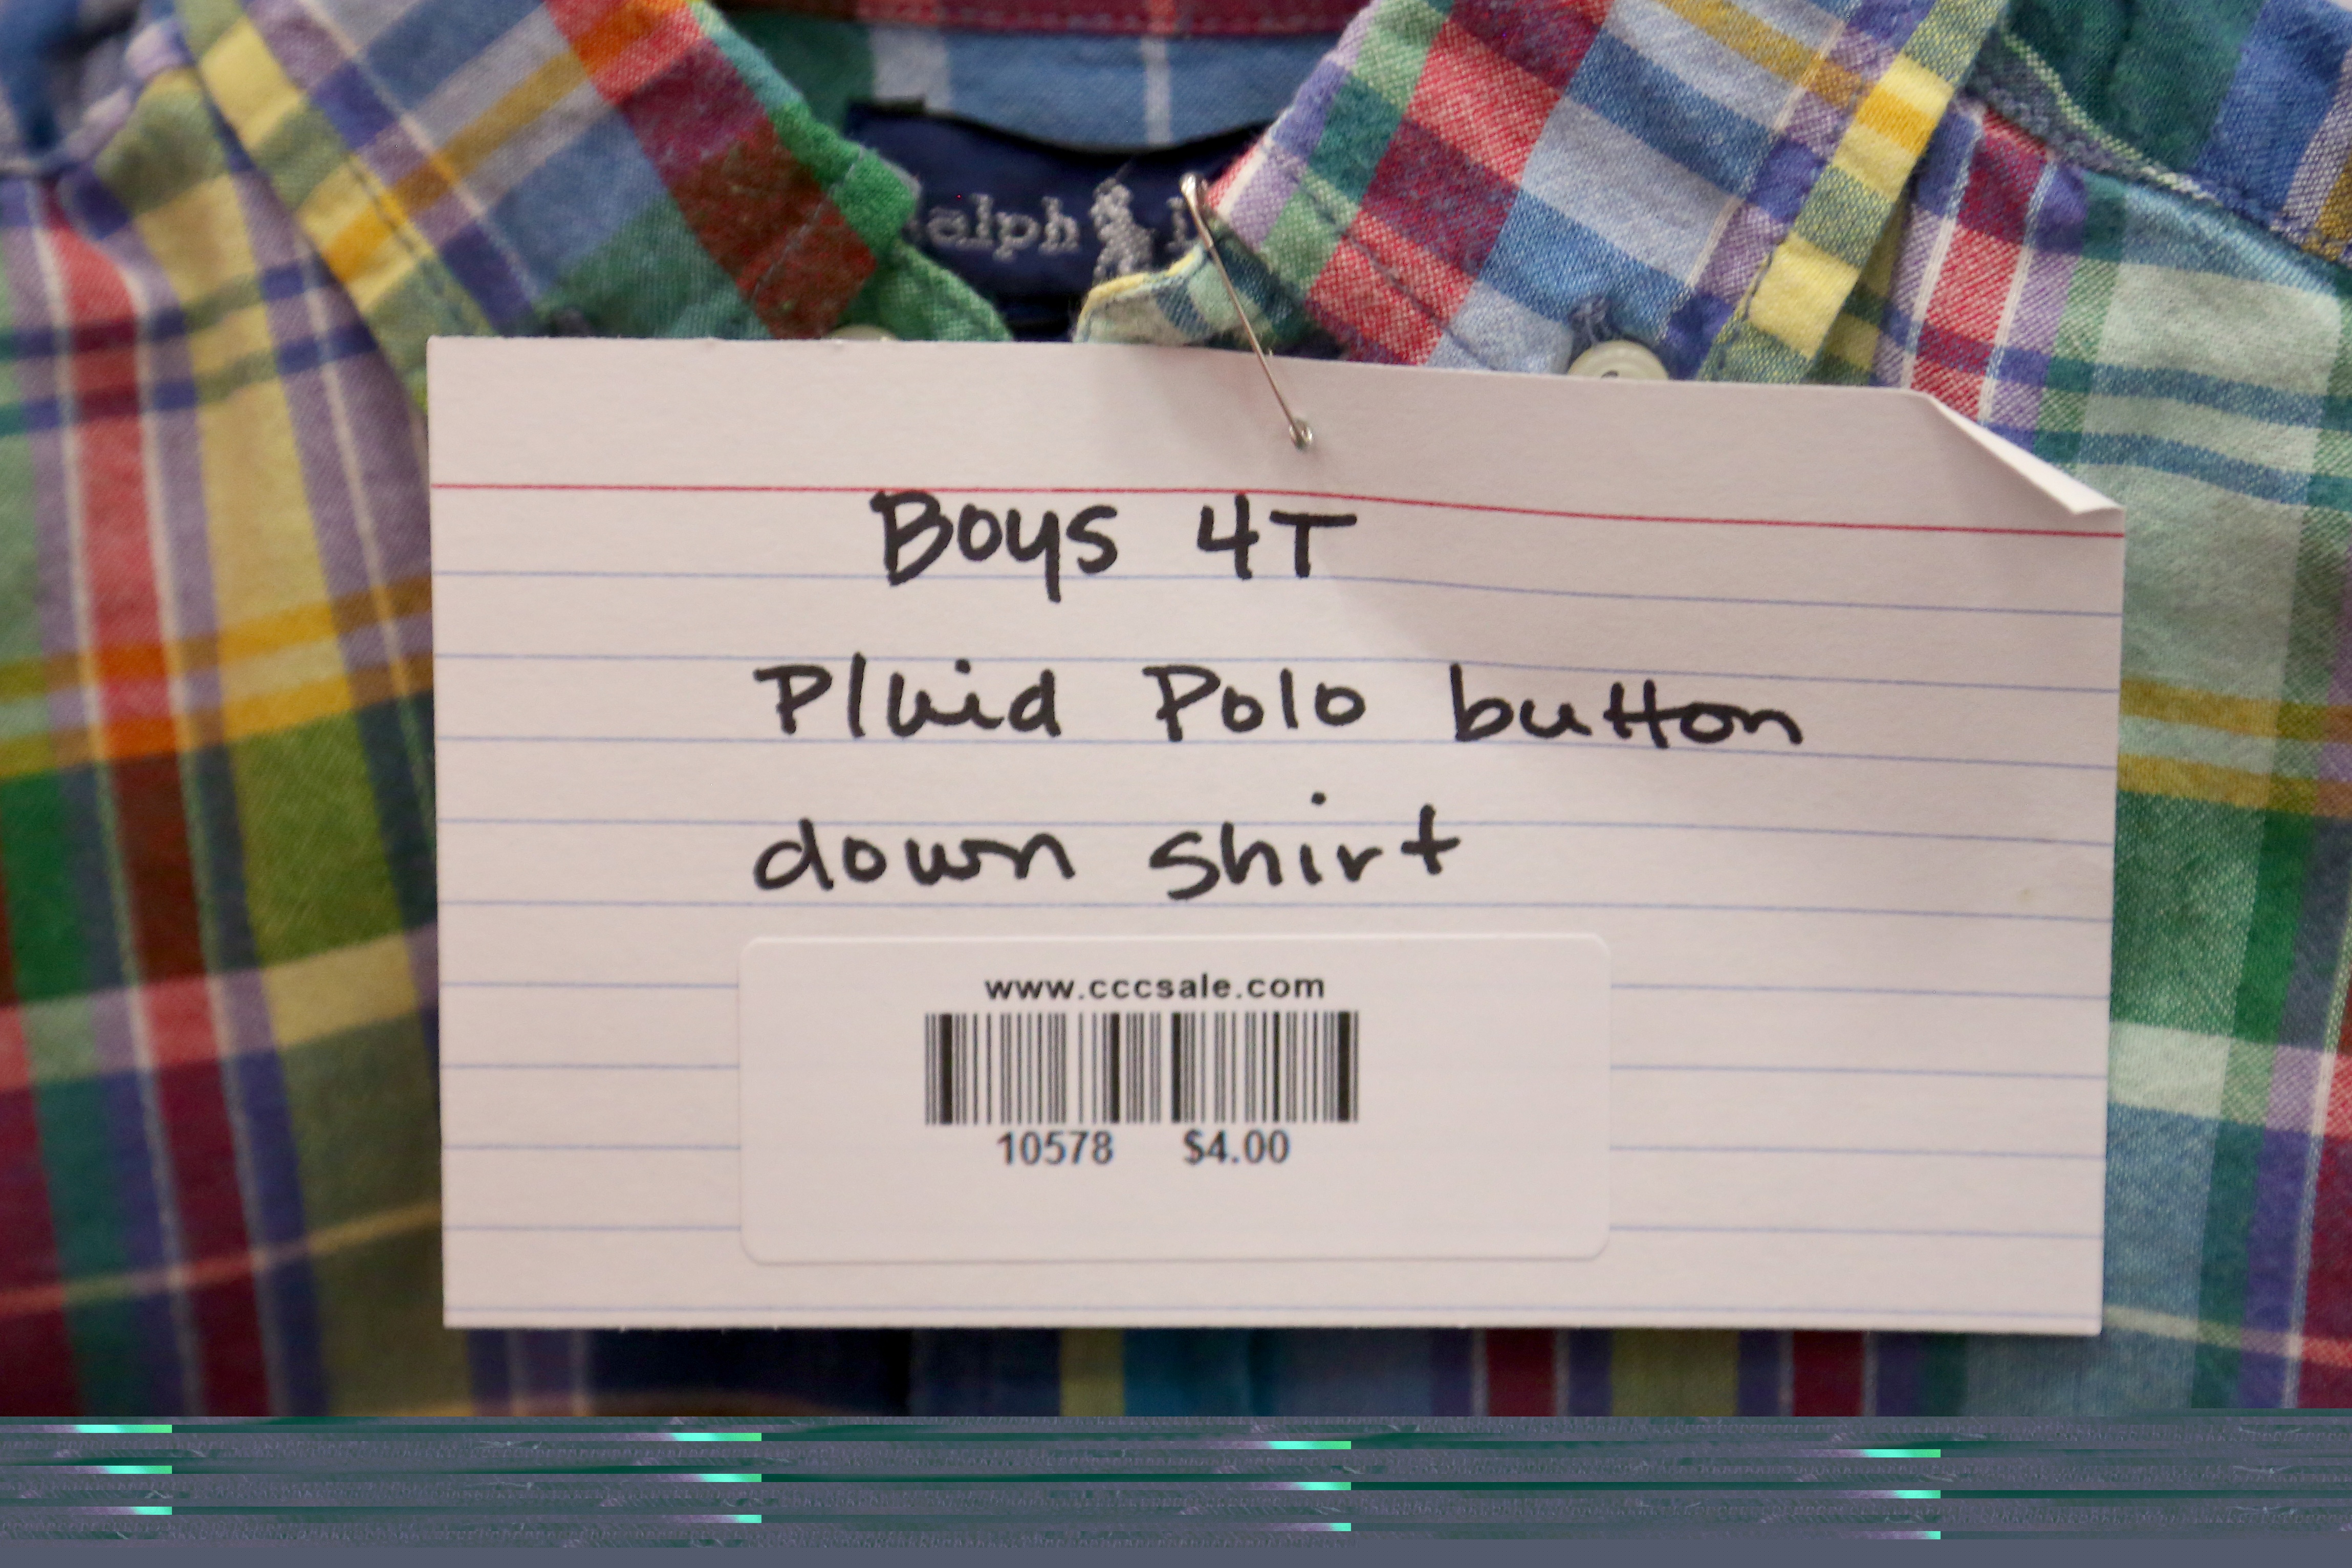 alph
Boys 4T
Plaid Polo button
down shirt
www.cccsale.com
10578 $4.00